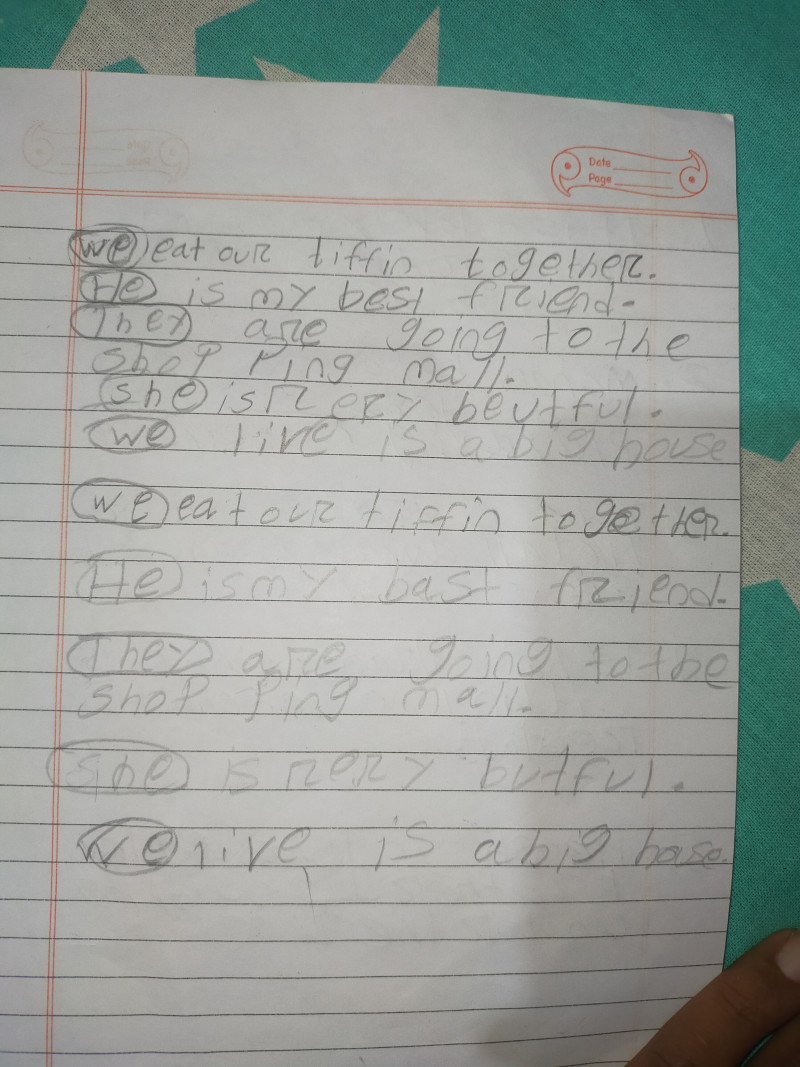 Date
Page
we eat our tiffin together.
He is my best friend.
They are going to the
shop ping mall.
she is rery beutful.
we live is a big house
we eat our tiffin together.
He is my bast friend.
They are going to the
shop ping mall.
she is rery butful.
we live is a big hose.